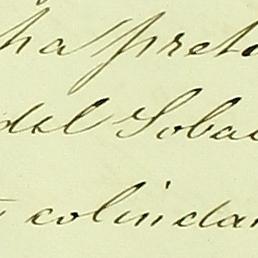 ha preto
del Soba
colindan